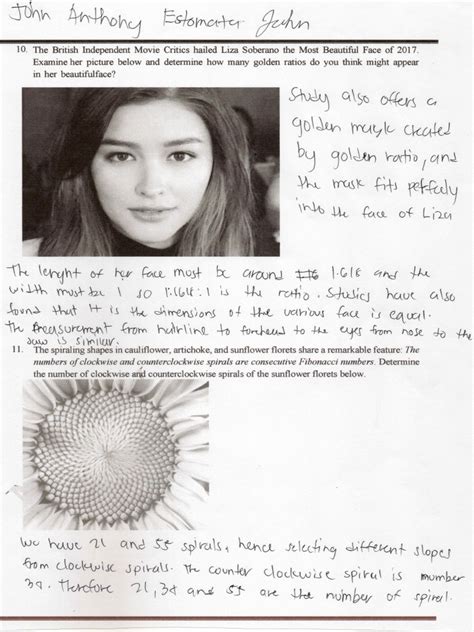 John Anthony Estomater Jahn
10. The British Independent Movie Critics hailed Liza Soberano the Most Beautiful Face of 2017.
Examine her picture below and determine how many golden ratios do you think might appear
in her beautifulface?
Study also offers a
golden mask created
by golden ratio, and
the mask fits perfectly
into the face of Liza
The lenght of her face must be around 1.618 and the
width must be 1 so 1.618 : 1 is the ratio. Studies have also
found that it is the dimensions of the various face is equal.
The measurement from hairline to forehead to the eyes from nose to the
jaw is similar.
11. The spiraling shapes in cauliflower, artichoke, and sunflower florets share a remarkable feature: The
numbers of clockwise and counterclockwise spirals are consecutive Fibonacci numbers. Determine
the number of clockwise and counterclockwise spirals of the sunflower florets below.
We have 21 and 55 spirals, hence selecting different slopes
from clockwise spirals. The counter clockwise spiral is number
34. Therefore 21, 34 and 55 are the number of spiral.